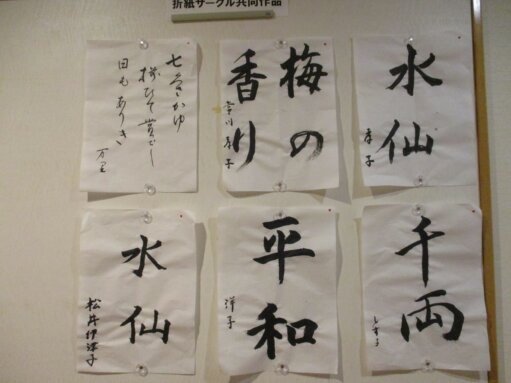 折紙サークル共同作品
水仙
孝子
梅の
香り
宮川孝子
七草かゆ
日もありき
万里
千両
平和
洋子
水仙
松井伊津子